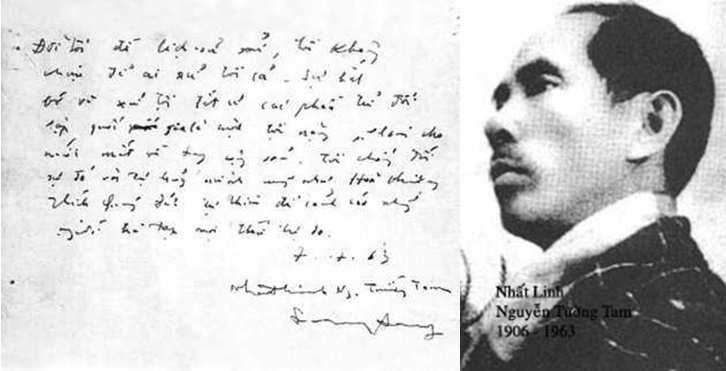 Đời tôi để lịch sử xử, tôi không
chịu để ai xử tôi cả. Sự bắt
bớ và xử tội tất cả các phần tử đối
lập quốc gia là một tội nặng, sẽ làm cho
nước mất về tay cộng sản. Tôi chống đối
sự đó và tự hủy mình cũng như Hòa thượng
Thích Quảng Đức tự thiêu để cảnh cáo những
người chà đạp mọi thứ tự do.
7-7-63
Nhất Linh Ng. Tường Tam
Nhất Linh
Nguyễn Tường Tam
1906 - 1963